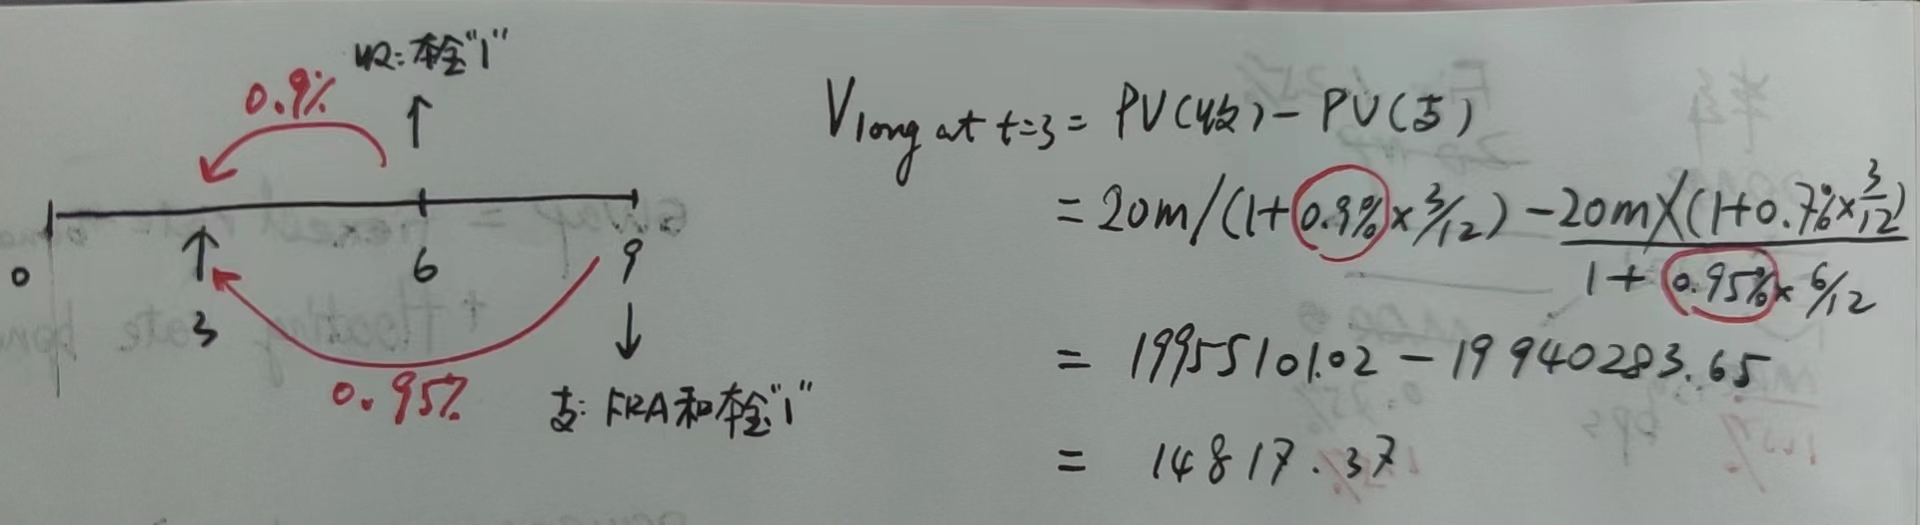 收:本金"1"
0.9%
0
3
6
9
0.95%
支: FRA和本金"1"
V long at t=3 = PV(收) - PV(支)
= 20m/(1+0.9%×3/12) - 20m×(1+0.7%×3/12) / 1+0.95%×6/12
= 19955101.02 - 19940283.65
= 14817.37